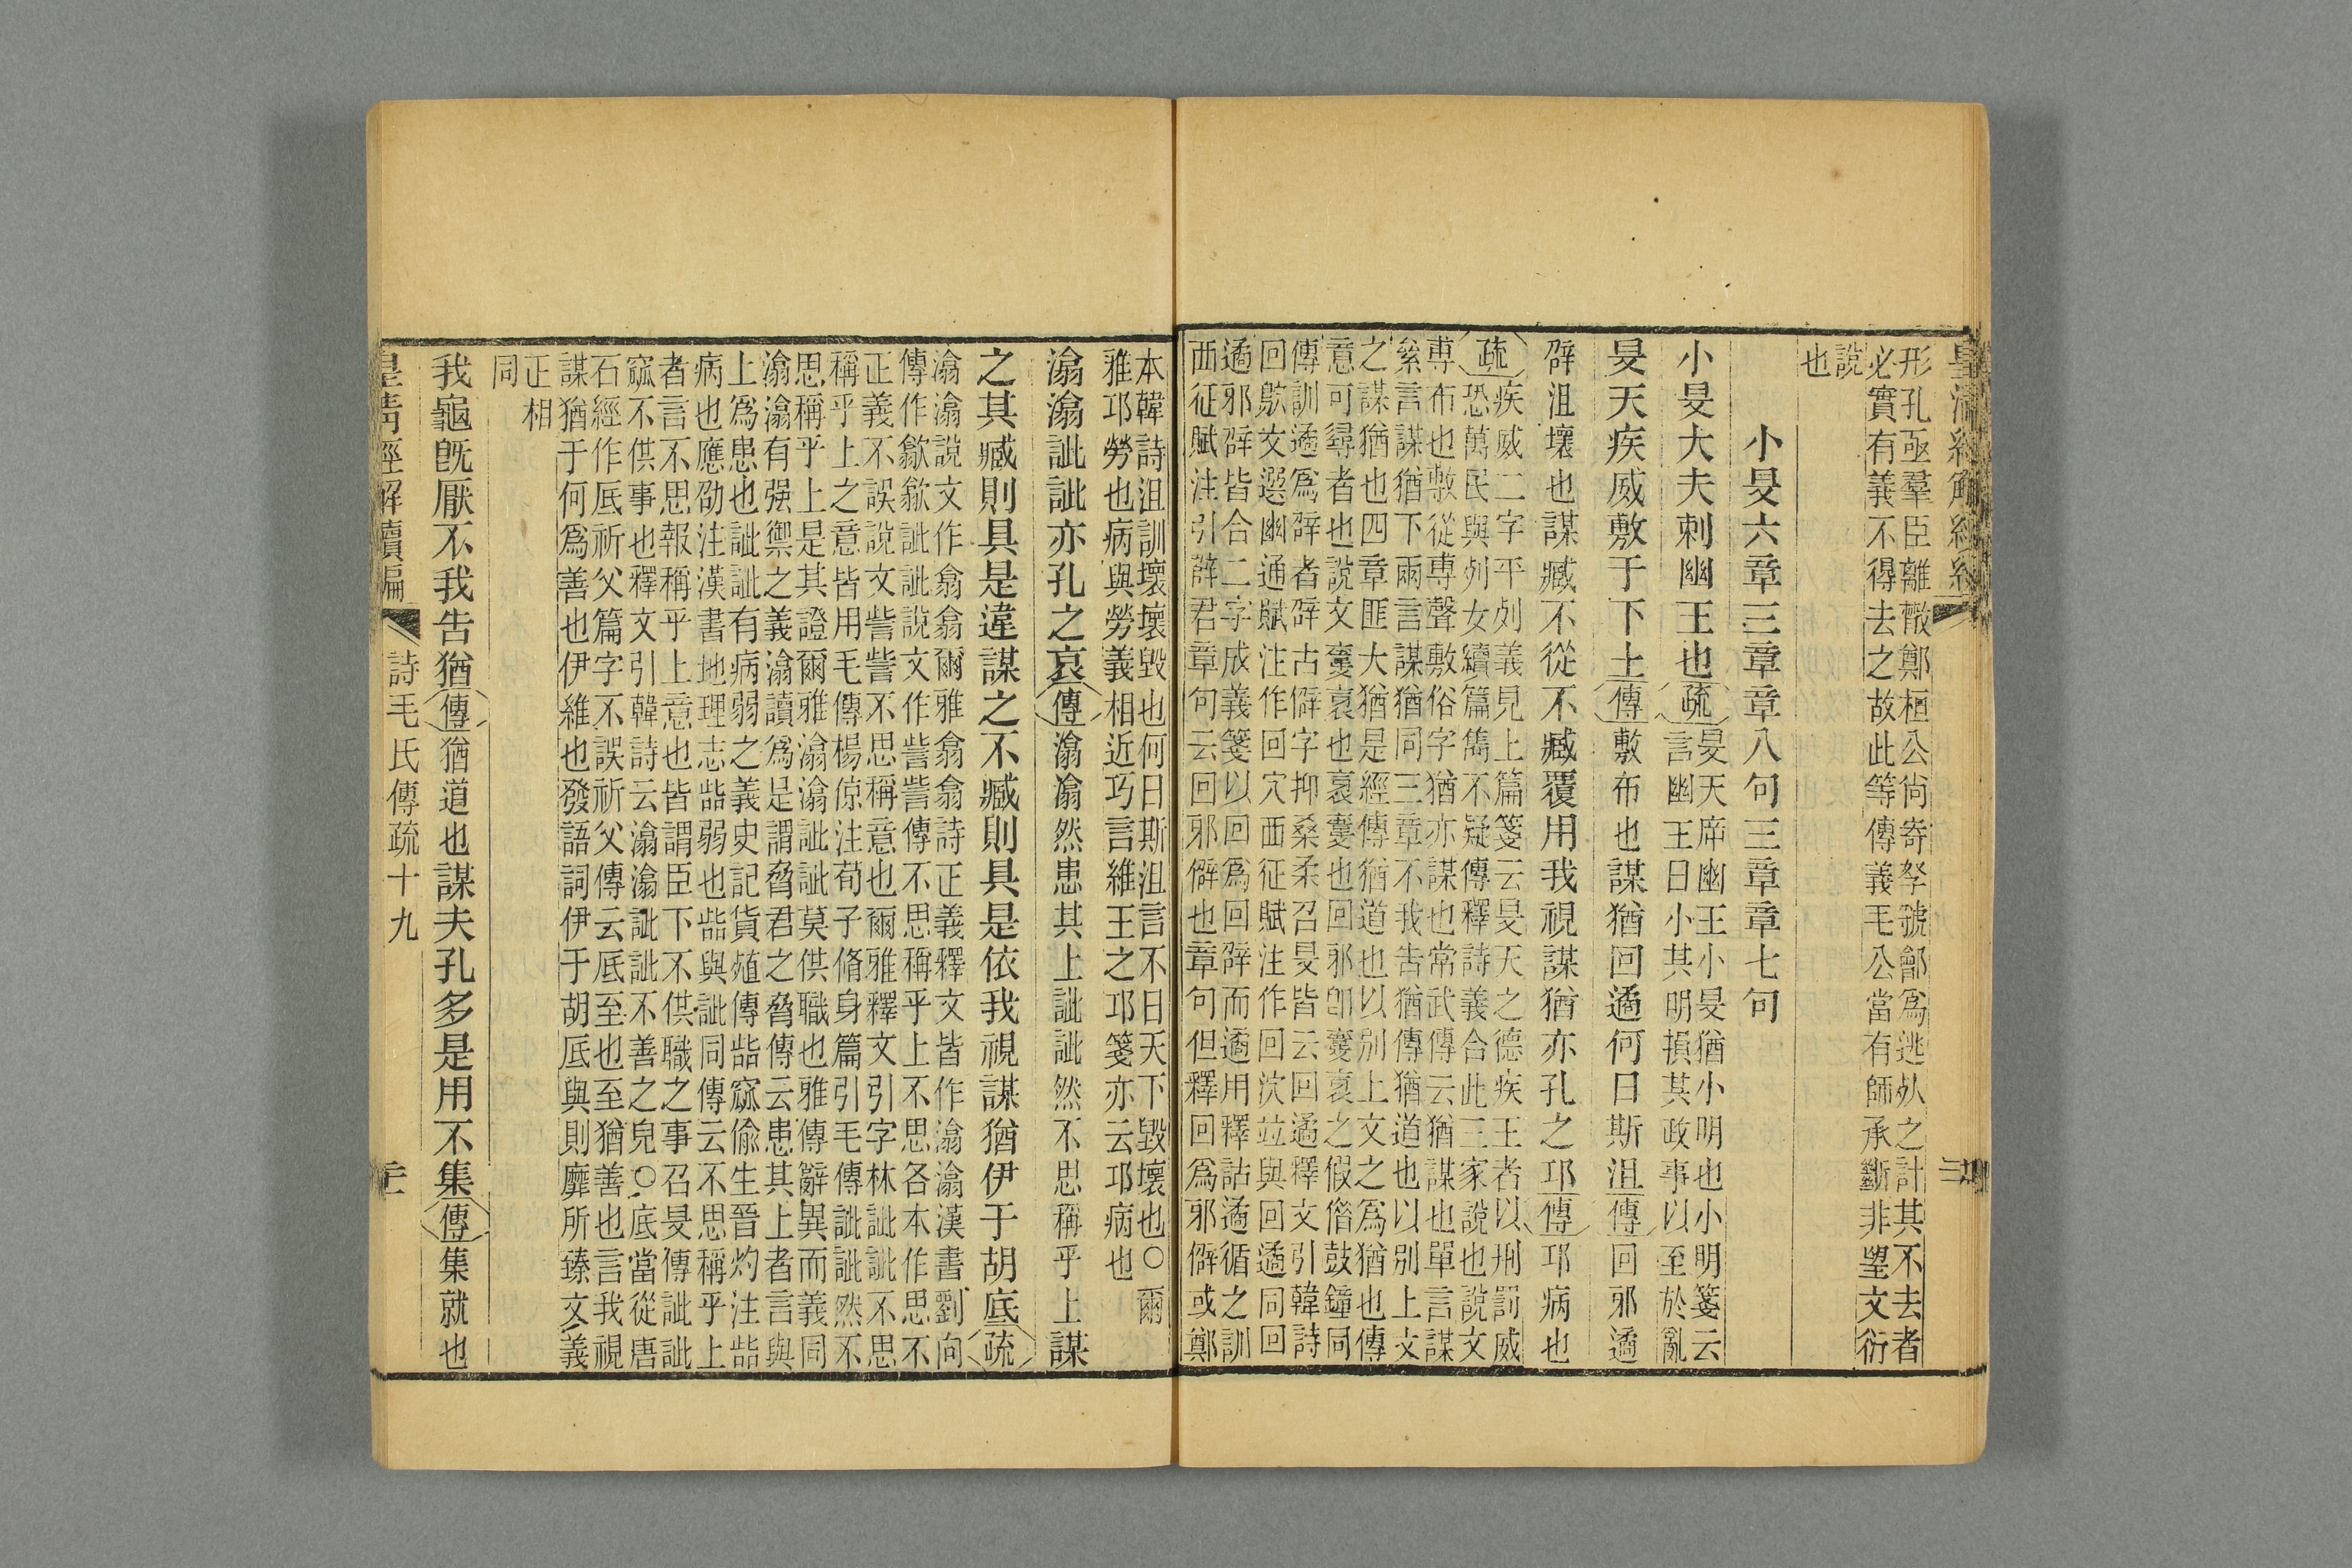 皇清經解續編
形孔亟羣臣離散鄭桓公尙寄孥虢鄶爲逃死之計其不去者
必實有義不得去之故此等傳義毛公當有師承斷非望文衍
說
也
小旻六章三章章八句三章章七句
小旻大夫刺幽王也疏
旻天席幽王小旻猶小明也小明箋云
言幽王日小其明損其政事以至於亂
旻天疾威敷于下土傳敷布也謀猶回遹何日斯沮傳回邪遹
辟沮壞也謀臧不從不臧覆用我視謀猶亦孔之邛傳邛病也
疏
疾威二字平列義見上篇箋云旻天之德疾王者以刑罰威
恐萬民與列女續篇雋不疑傳釋詩義合此三家說也說文
尃布也敷從尃聲敷俗字猶亦謀也常武傳云猶謀也單言謀
絫言謀猶下兩言謀猶同三章不我告猶傳猶道也以別上文
之謀猶也四章匪大猶是經傳猶道也以別上文之爲猶也傳
意可尋者也說文褱袌也袌褱也回邪卽褱袌之假偕鼓鐘同
傳訓遹爲辟者辟古僻字抑桑柔召旻皆云回遹釋文引韓詩
回鴥文選幽通賦注作回穴西征賦注作回泬竝與回遹同回
遹邪辟皆合二字成義箋以回爲回辟而遹用釋詁遹循之訓
西征賦注引薛君章句云回邪僻也章句但釋回爲邪僻或鄭
本韓詩沮訓壞壞毀也何日斯沮言不日天下毀壞也○爾
雅邛勞也病與勞義相近巧言維王之邛箋亦云邛病也
潝潝訿訿亦孔之哀傳潝潝然患其上訿訿然不思稱乎上謀
之其臧則具是違謀之不臧則具是依我視謀猶伊于胡底疏
潝潝說文作翕翕爾雅翕翕詩正義釋文皆作潝潝漢書劉向
傳作歙歙訿訿說文作呰呰傳不思稱乎上不思各本作思不
正義不誤說文呰呰不思稱意也爾雅釋文引字林訿訿不思
稱乎上之意皆用毛傳楊倞注荀子脩身篇引毛傳訿訿然不
思稱乎上是其證爾雅潝潝訿訿莫供職也雅傳辭異而義同
潝潝有强禦之義潝讀爲足謂脅君之脅傳云患其上者言與
上爲患也訿訿有病弱之義史記貨殖傳呰窳偷生晉灼注呰
病也應劭注漢書地理志呰弱也呰與訿同傳云不思稱乎上
者言不思報稱乎上意也皆謂臣下不供職之事召旻傳訿訿
窳不供事也釋文引韓詩云潝潝訿訿不善之皃○底當從唐
石經作厎祈父篇字不誤祈父傳云厎至也至猶善也言我視
謀猶于何爲善也伊維也發語詞伊于胡厎與則靡所臻文義
正相
同
我龜旣厭不我告猶傳猶道也謀夫孔多是用不集傳集就也
皇清經解續編
詩毛氏傳疏十九